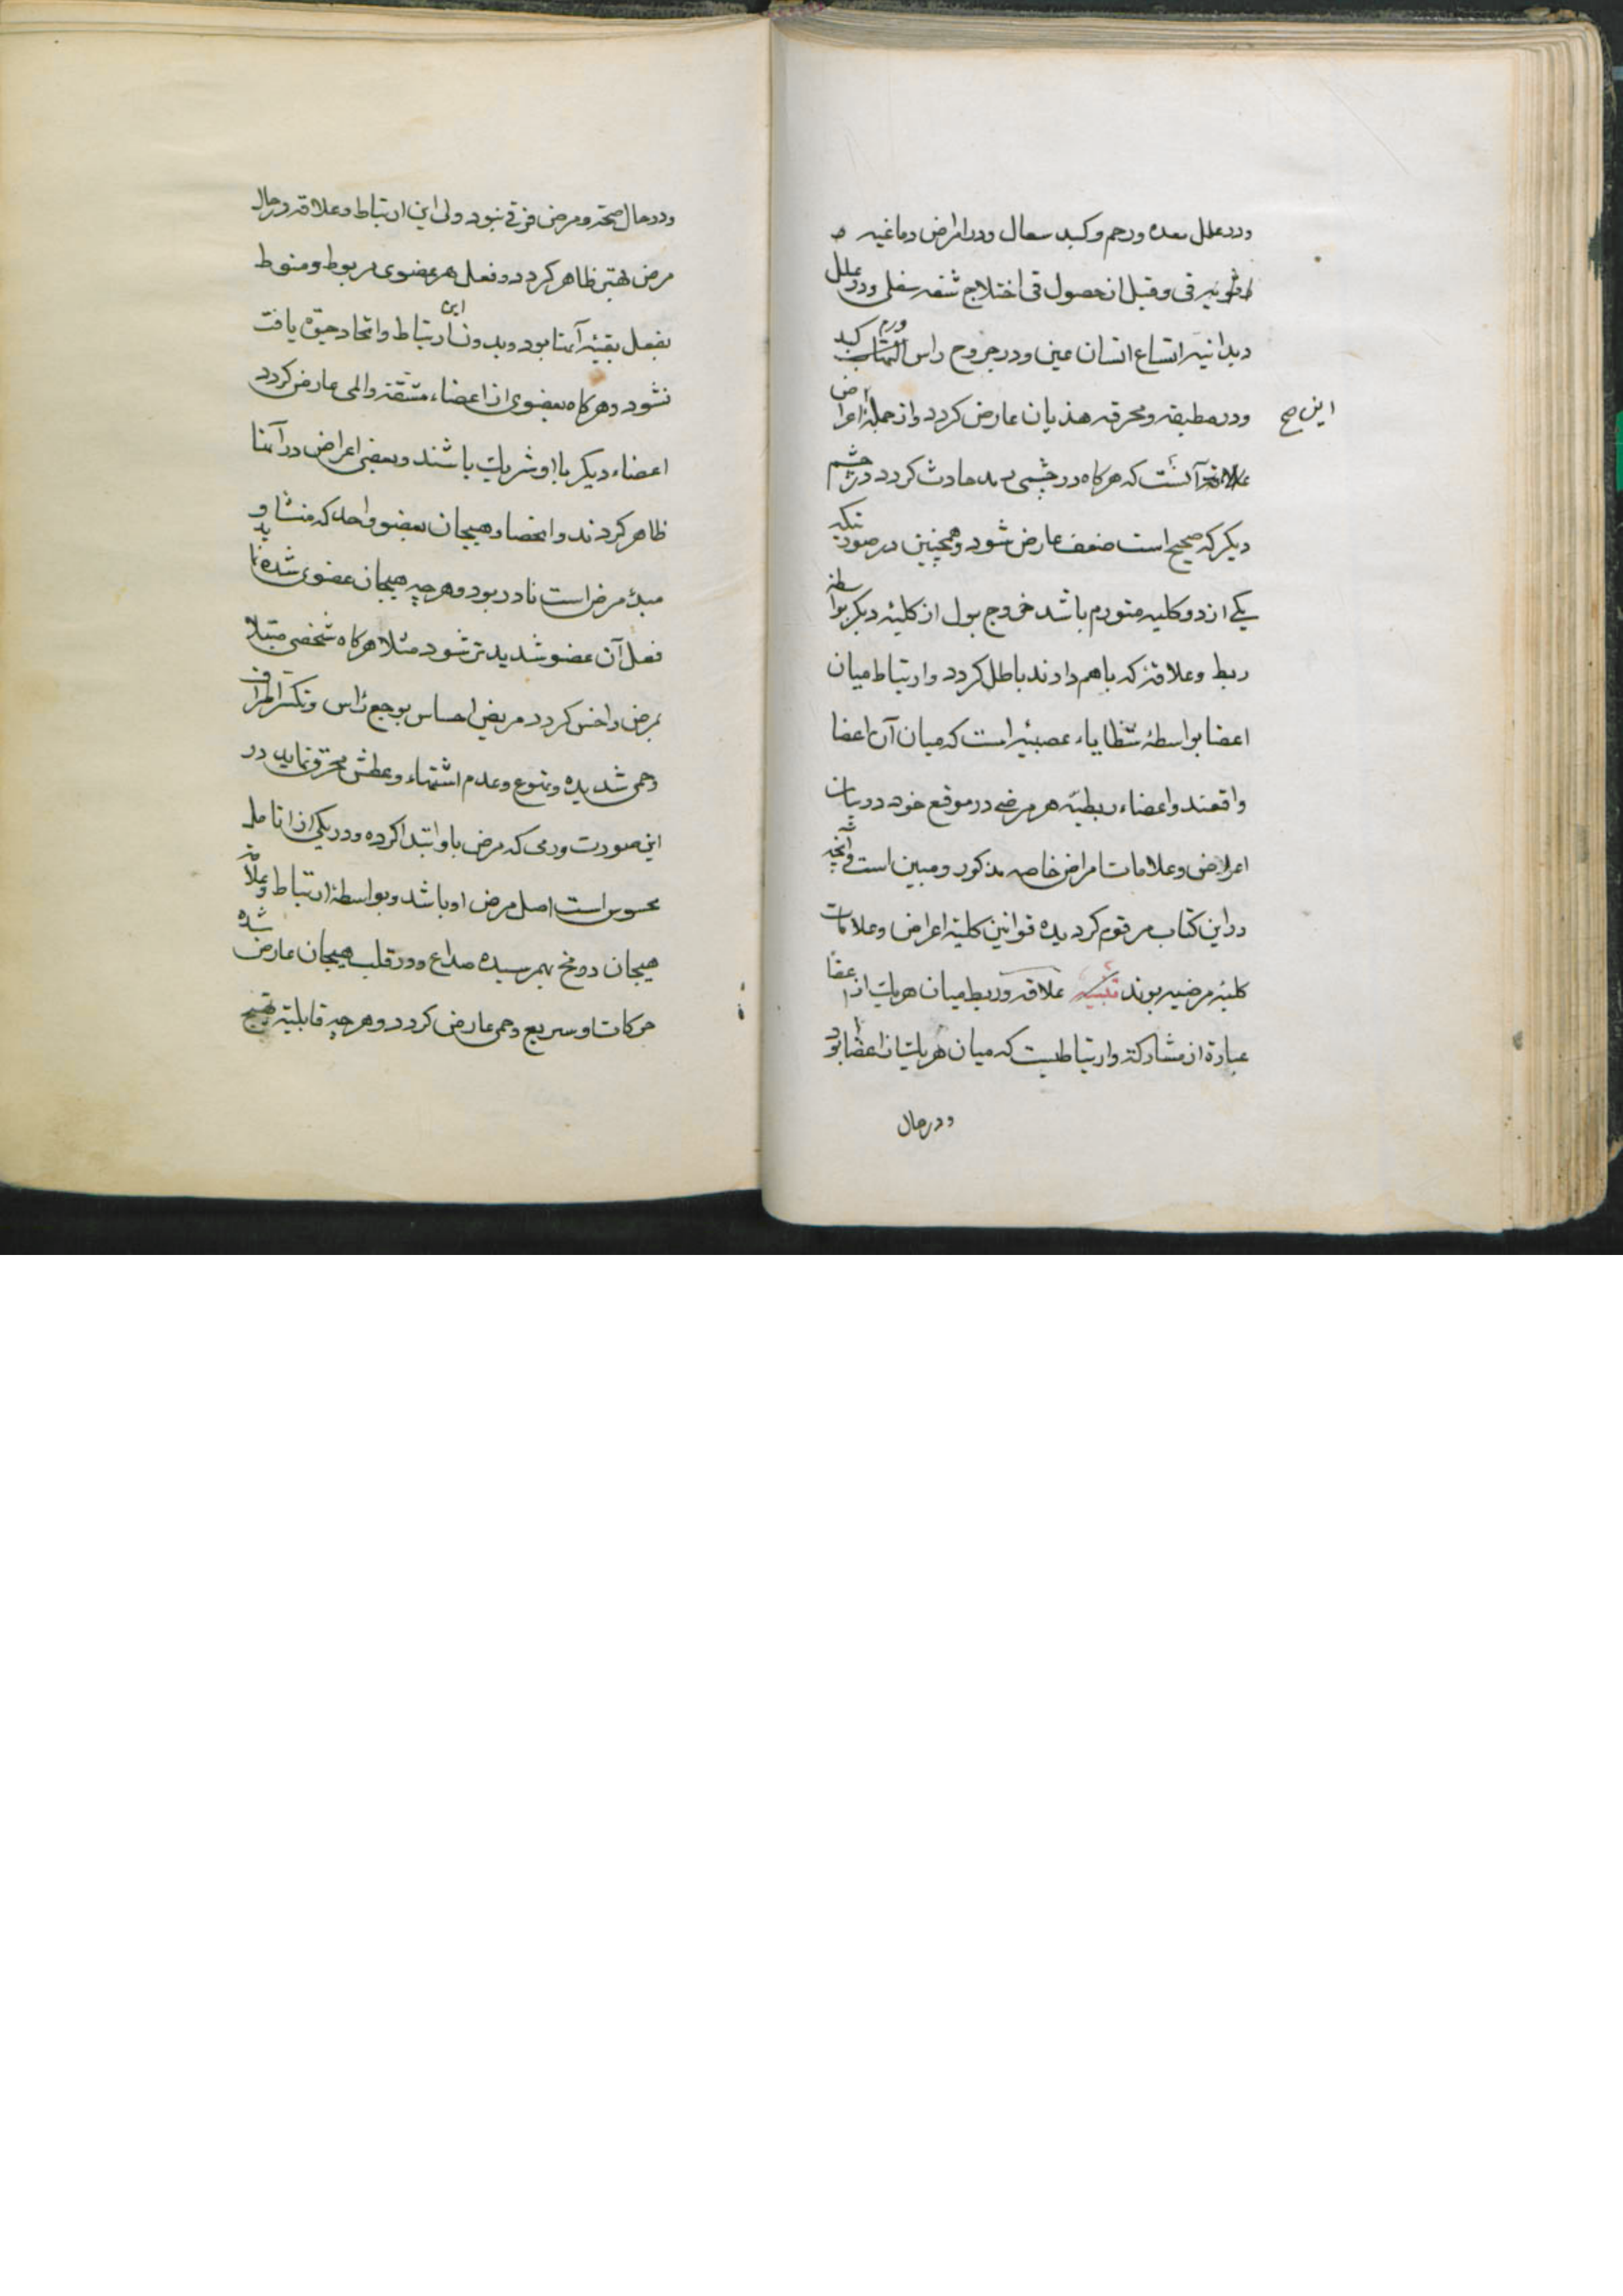 ودر علل معده ورحم وکبد سعال ودر امراض دماغیه و
قی وقبل از حصول قی اختلاج شفه سفلی ودر علل
دیدانیه اتساع انسان عین ودر جروح راس ورم کبد
ودر مطبقه ومحرقه هذیان عارض کردد واز جملهٔ اعراض
این صح
آنست که هرکاه در چشمی رمد حادث کردد در چشم
دیکر که صحیح است ضعف عارض شود وهمچنین در صورتیکه
یکے از دو کلیه متورم باشد خروج بول از کلیهٔ دیکر بواسطهٔ
ربط وعلاقهٔ که باهم دارند باطل کردد وارتباط میان
اعضا بواسطهٔ شظایاء عصبیه است که میان آن اعضا
واقعند واعضاء ربطیهٔ هر مرضے در موقع خود در بیان
اعراض وعلامات امراض خاصه مذکور ومبین است وآنچه
در این کتاب مرقوم کردیده قوانین کلیهٔ اعراض وعلامات
کلیهٔ مرضیه بوند تنبیه علاقه وربط میان هریک از اعضا
عبارة از مشارکة وارتباطیست که میان هریک از اعضا بود
ودر حال
ودر حال صحة ومرض فرقی نبود ولی این ارتباط وعلاقه در حال
مرض بهتر ظاهر کردد وفعل هر عضوی مربوط ومنوط
بفعل بقیهٔ آنها بود وبدون این ارتباط واتحاد حیوة یافت
نشود وهرکاه بعضوی از اعضاء مشقة والمی عارض کردد
اعضاء دیکر با او شریک باشند وبعضی اعراض در آنها
ظاهر کردند وانحصار هیجان بعضو واحد که منشاء و
مبدء مرض است نادر بود وهرچه هیجان عضوی شدید
فعل آن عضو شدیدتر شود مثلا هرکاه شخصی مبتلا
بمرض داخس کردد مریض احساس بوجع راس وتکسر اطراف
وحمی شدیده وتهوع وعدم اشتهاء وعطش محرق نماید در
این صورت ورمی که مرض باو ابتدا کرده ودر یکی از انامل
محسوس است اصل مرض او باشد وبواسطهٔ ارتباط وعلاقه
هیجان در مخ بهم رسیده صداع ودر قلب هیجان عارض شده
حرکات او سریع وحمی عارض کردد وهرچه قابلیة تهیج